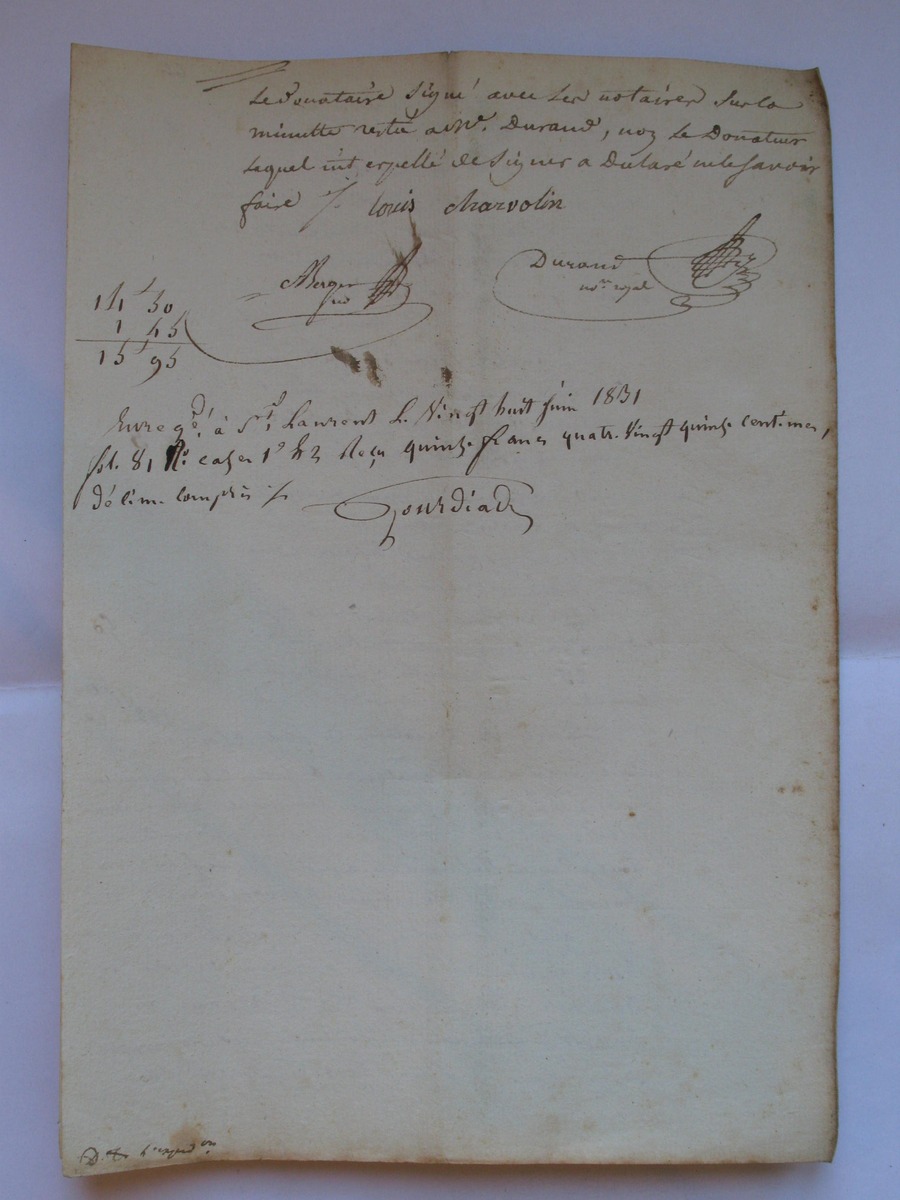 Le Donataire Signé avec Les notaires Sur la
minutte restée a Me. Durand, non Le Donateur
Lequel interpellé de Signer a Declaré ne le Savoir
faire /. Louis charvolin
Merger
no
Durand
nore. royal
14 50
1 45
15 95
Enregé. à St. Laurent Le Vingt huit Juin 1831
fol. 81 Ro. cases 1e & 2 Reçu quinze francs quatre Vingt quinze centimes,
décime compris /.
Gourdiat